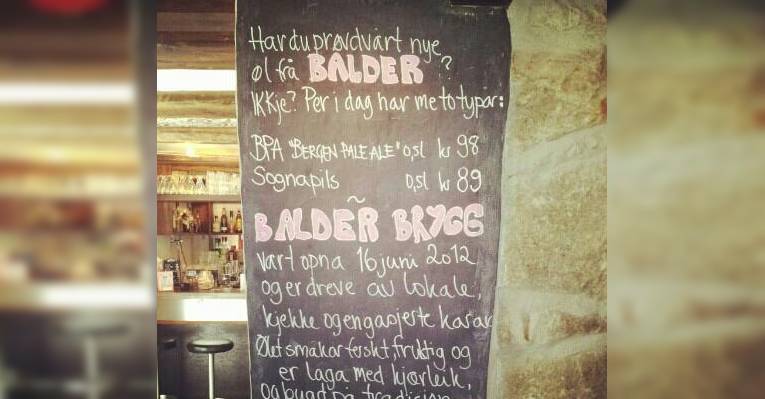 Har du prøvd vårt nye
øl frå BALDER?
IKKje? Per i dag har me to typar:
BPA "BERGEN PALE ALE" 0,5l kr 98
Sognapils 0,5l kr 89
~
BALDER BRYGG
vart opna 16 juni 2012
og er dreve av lokale,
kjekke og engasjerte karar
Ølet smakar ferskt, fruktig og
er laga med kjærleik,
og bygd på tradisjon